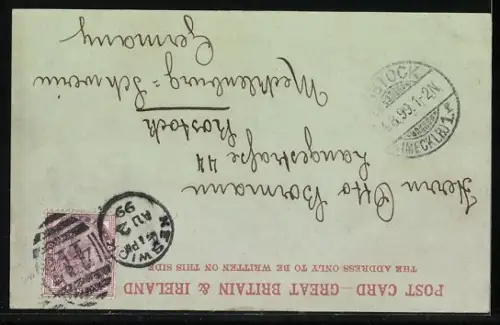 POST CARD—GREAT BRITAIN & IRELAND
THE ADDRESS ONLY TO BE WRITTEN ON THIS SIDE
KESWICK
AU 2
99
Herrn Otto Bormann
Langestraße 44
Rostock
Mecklenburg=Schwerin
Germany
ROSTOCK
.8.99.1-2N
(MECKLB) 1.